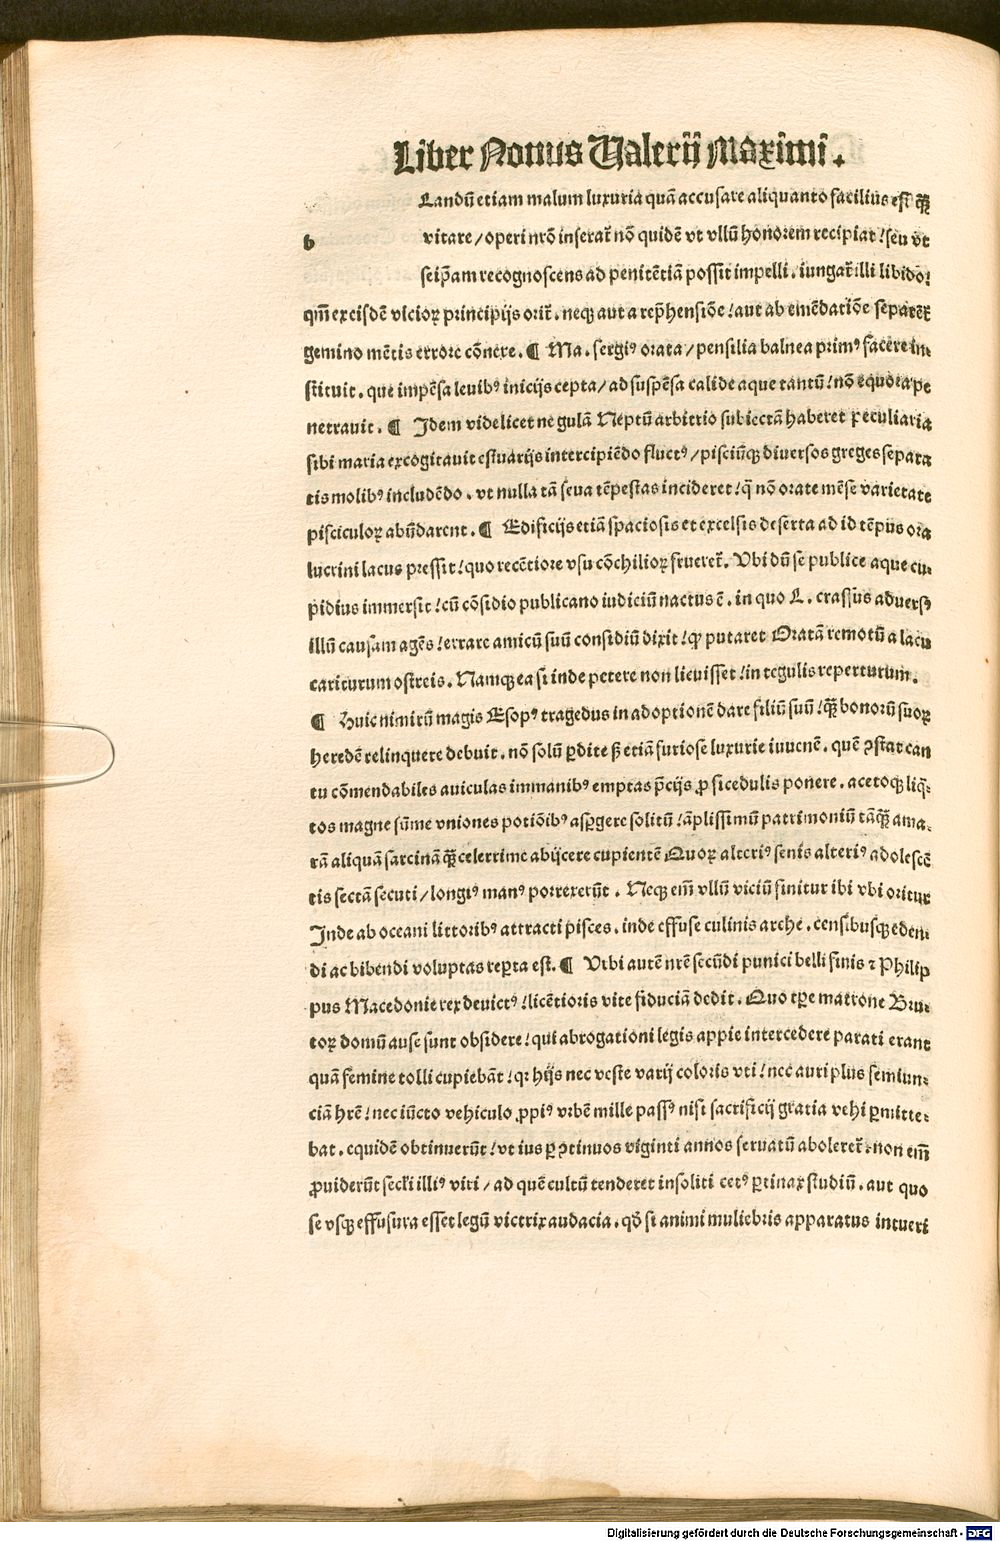 Liber Nonus Valerij Maximi.
Landū etiam malum luxuria quā accusare aliquanto facilius est qꝫ̄
b
vitare / operi nr̄o inserat̄ nō quidē vt vllū honorem recipiat ! seu vt
seip̄am recognoscens ad penitētiā possit impelli. iungat̄ illi libido:
qm̄ ex eisdē vicioꝝ principijs orit̄. neqꝫ aut a rep̄hensiōe ! aut ab emēdatiōe separēt̄
gemino mētis errore cōnexe. ¶ Ma. sergiꝰ orata / pensilia balnea primꝰ facere in⸗
stituit. que impēsa leuibꝰ inicijs cepta / ad suspēsa calide aque tantū ! nō equora pe
netrauit. ¶ Idem videlicet ne gulā Neptū arbitrio subiectā haberet peculiaria
sibi maria excogitauit estuarijs intercipiēdo fluctꝰ / pisciūqꝫ diuersos greges separa
tis molibꝰ includēdo. vt nulla tā seua tēpestas incideret ! q̄ nō orate mēse varietate
pisciculoꝝ abūdarent. ¶ Edificijs etiā spaciosis et excelsis deserta ad id tēpus ora
lucrini lacus pressit ! quo recētiore vsu cōchilioꝝ frueret̄. Vbi dū se publice aque cu⸗
pidius immersit ! cū cōsidio publicano iudiciū nactus ē. in quo L. crassus aduersꝰ
illū causam agēs ! errare amicū suū considiū dixit ! ꝙ putaret Oratā remotū a lacu
cariturum ostreis. Namqꝫ ea si inde petere non licuisset ! in tegulis reperturum.
¶ Huic nimirū magis Esopꝰ tragedus in adoptionē dare filiū suū ! qꝫ̄ bonorū suoꝝ
heredē relinquere debuit. nō solū ꝑdite ß etiā furiose luxurie iuuenē. quē ꝯstat can
tu cōmendabiles auiculas immanibꝰ emptas p̄cijs ꝓ sicedulis ponere. acetoqꝫ liq̄⸗
tos magne sūme vniones potiōibꝰ aspgere solitū ! āplissimū patrimoniū tāqꝫ̄ ama⸗
rā aliquā sarcinā qꝫ̄ celerrime abijcere cupientē Quoꝝ alteriꝰ senis alteriꝰ adolescē
tis sectā secuti / longiꝰ manꝰ porrexerūt. Neqꝫ em̄ vllū viciū finitur ibi vbi oritur
Inde ab oceani littoribꝰ attracti pisces. inde effuse culinis arche. censibusqꝫ eden⸗
di ac bibendi voluptas reꝑta est. ¶ Vrbi autē nr̄e secūdi punici belli finis ⁊ Philip
pus Macedonie rex deuictꝰ ! licētioris vite fiduciā dedit. Quo tꝑe matrone Bru⸗
toꝝ domū ause sunt obsidere ! qui abrogationi legis appie intercedere parati erant
quā femine tolli cupiebāt ! qꝛ hijs nec veste varij coloris vti ! nec auri plus semiun⸗
ciā hr̄e ! nec iūcto vehiculo ꝓpiꝰ vrbē mille passꝰ nisi sacrificij gratia vehi ꝑmitte⸗
bat. equidē obtinuerūt ! vt ius ꝑ ꝯtinuos viginti annos seruatū aboleret̄. non em̄
ꝓuiderūt secl̄i illiꝰ viri / ad quē cultū tenderet insoliti cetꝰ ꝑtinax studiū. aut quo
se vsqꝫ effusura esset legū victrix audacia. qd̄ si animi muliebris apparatus intueri
Digitalisierung gefördert durch die Deutsche Forschungsgemeinschaft - DFG